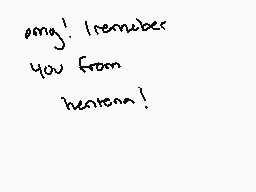 omg! I remeber
you from
hentena!